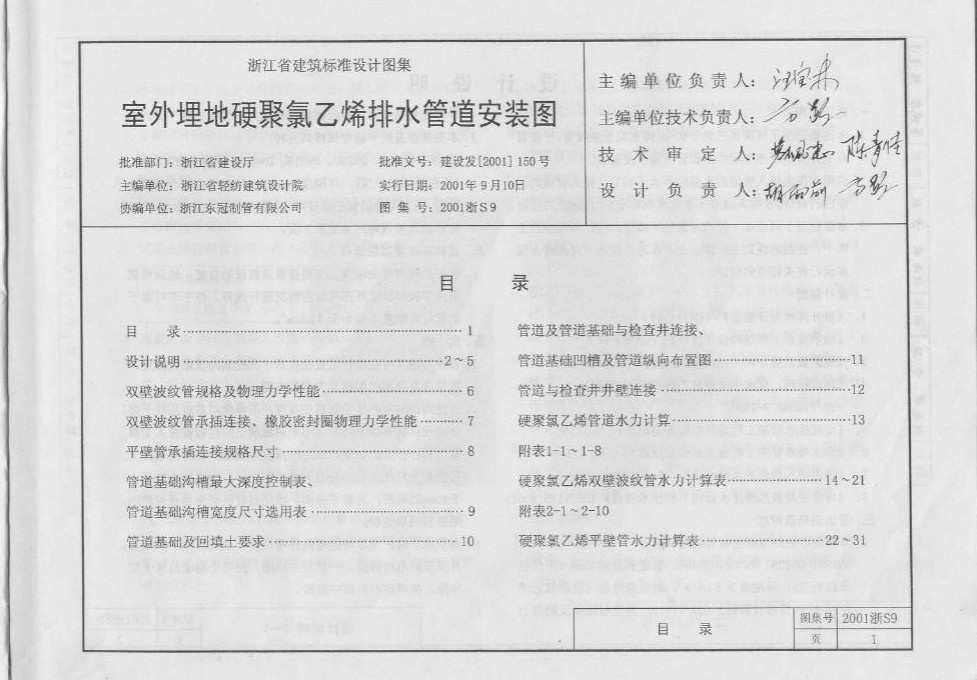 浙江省建筑标准设计图集
室外埋地硬聚氯乙烯排水管道安装图
批准部门：浙江省建设厅
批准文号：建设发[2001]150号
主编单位：浙江省轻纺建筑设计院
实行日期：2001年9月10日
协编单位：浙江东冠制管有限公司
图 集 号：2001浙S9
主编单位负责人：
主编单位技术负责人：
技 术 审 定 人：
设 计 负 责 人：
目 录
目 录……1
设计说明……2~5
双壁波纹管规格及物理力学性能……6
双壁波纹管承插连接、橡胶密封圈物理力学性能……7
平壁管承插连接规格尺寸……8
管道基础沟槽最大深度控制表、
管道基础沟槽宽度尺寸选用表……9
管道基础及回填土要求……10
管道及管道基础与检查井连接、
管道基础凹槽及管道纵向布置图……11
管道与检查井井壁连接……12
硬聚氯乙烯管道水力计算……13
附表1-1~1-8
硬聚氯乙烯双壁波纹管水力计算表……14~21
附表2-1~2-10
硬聚氯乙烯平壁管水力计算表……22~31
目 录
图集号 2001浙S9
页 1